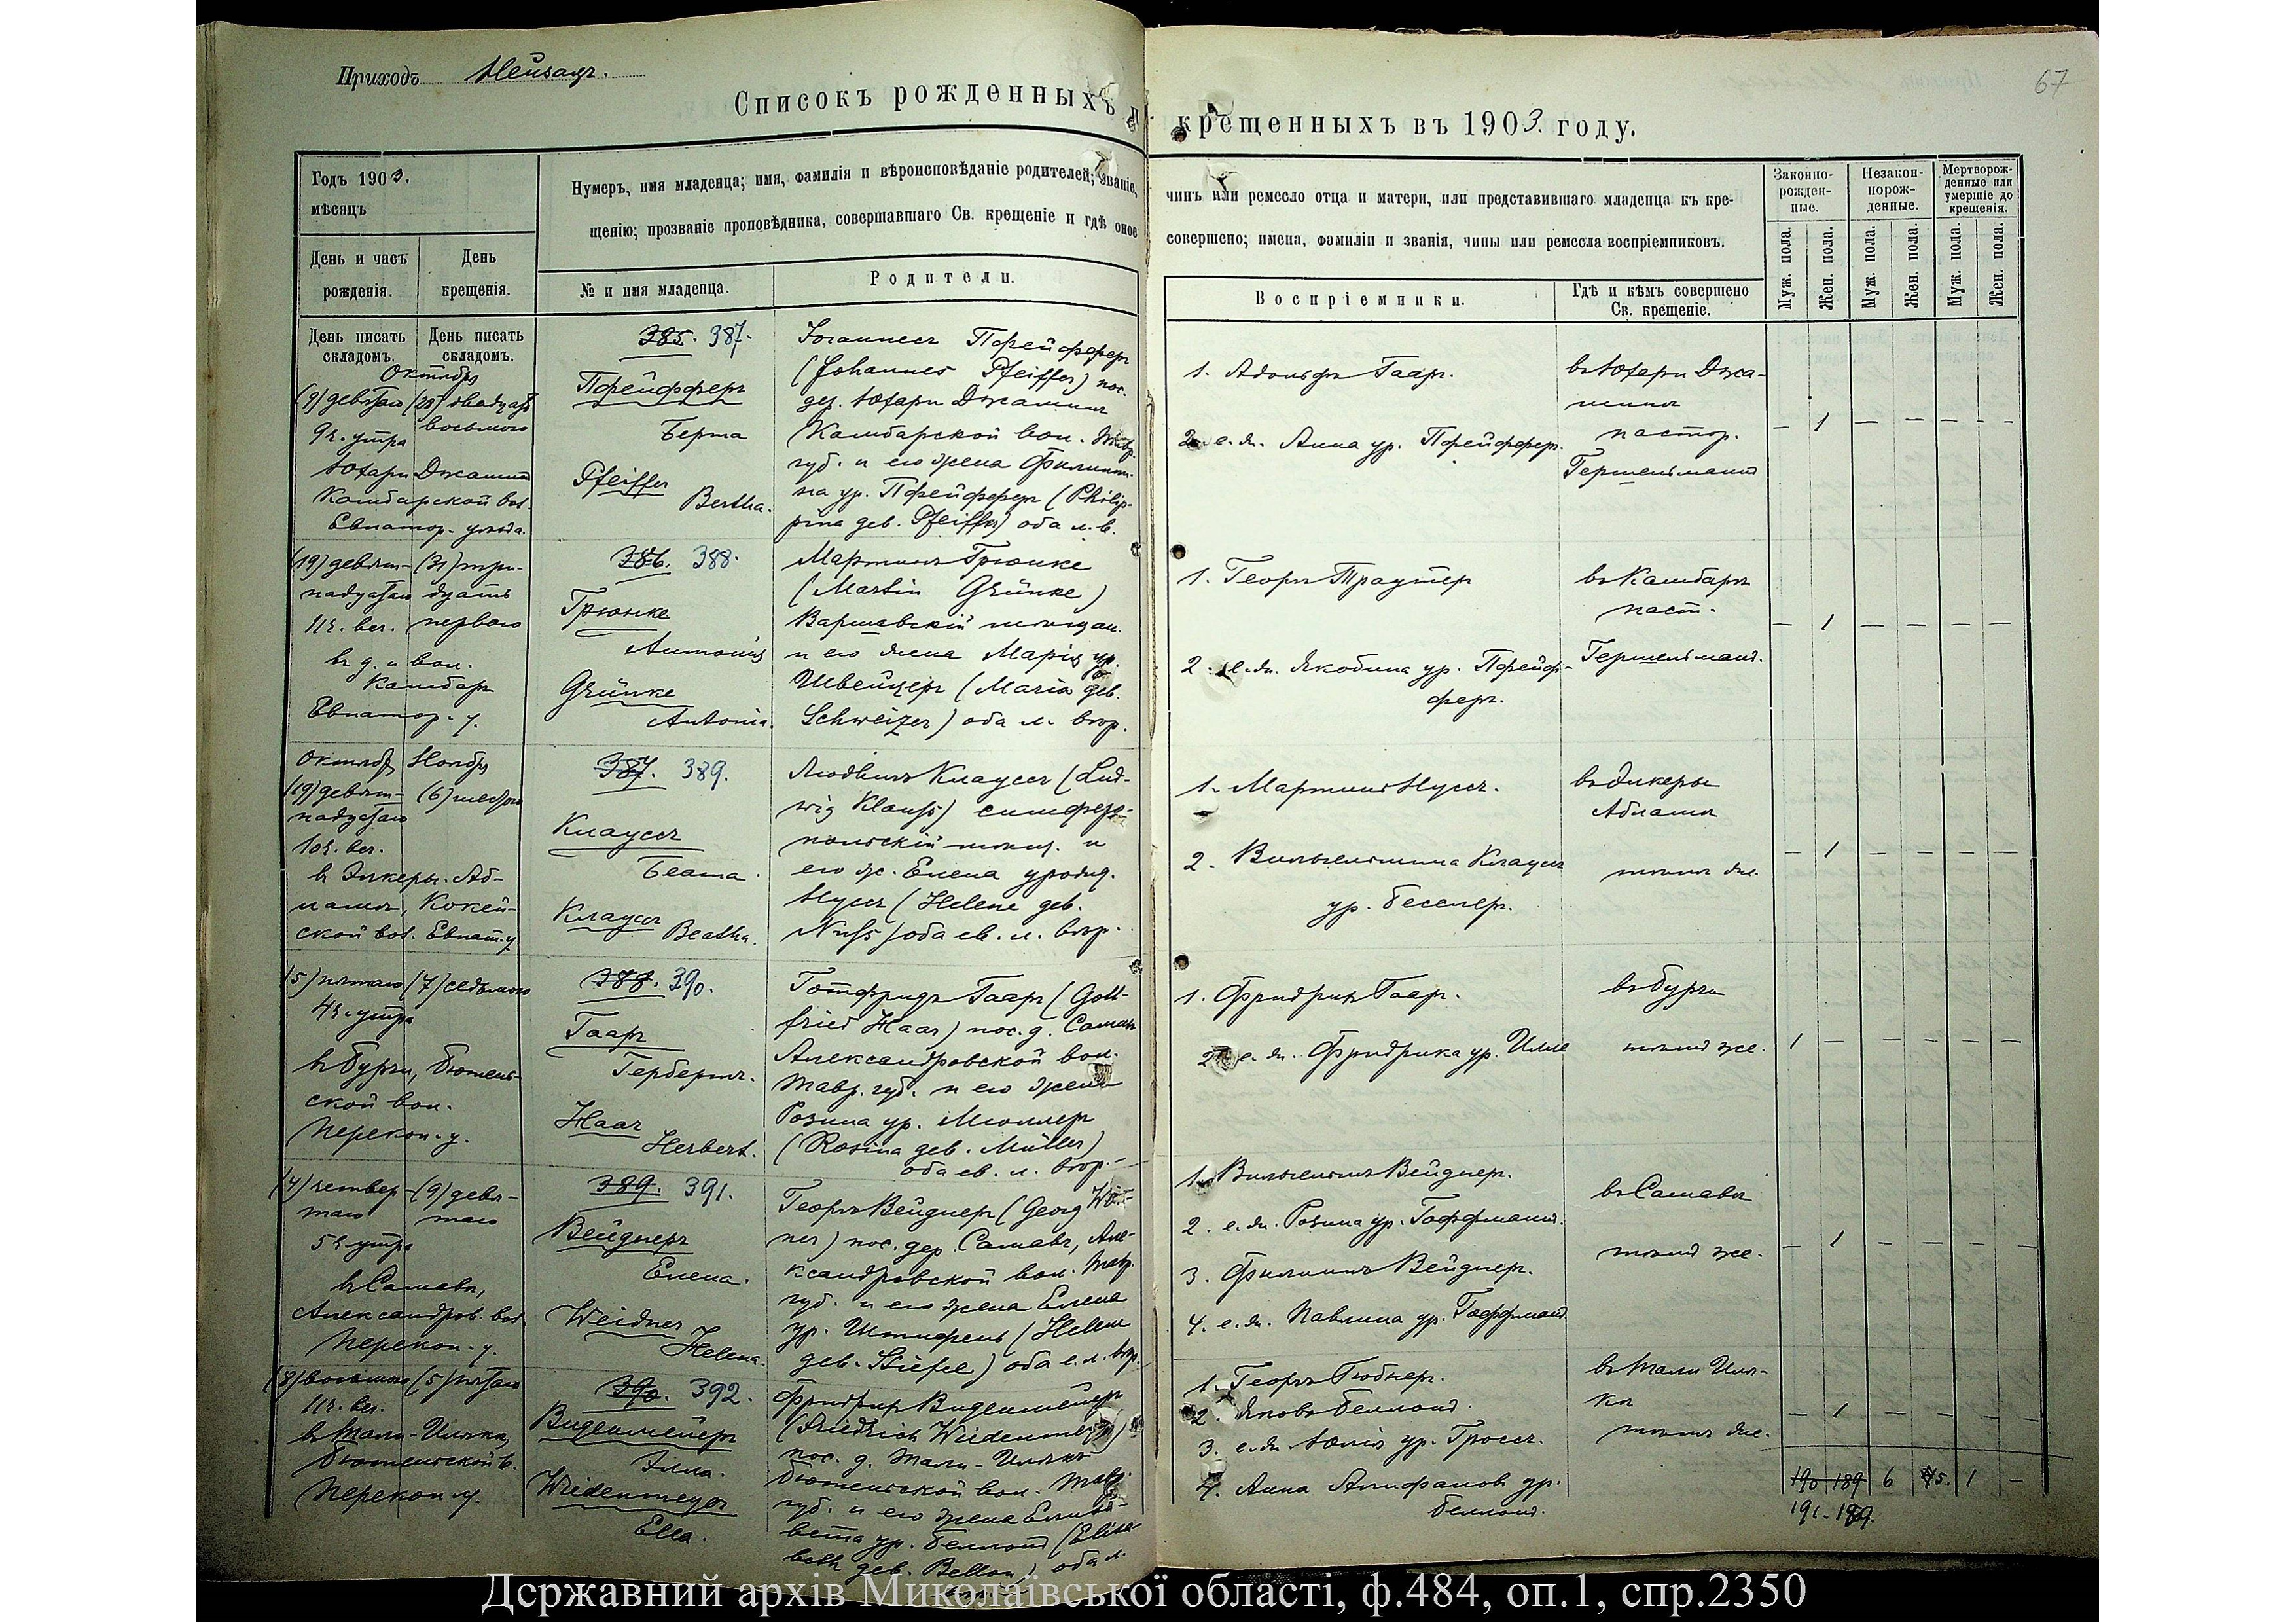 Приходъ Нейзацъ.
67
Списокъ рожденныхъ и крещенныхъ въ 1903. году.
Годъ 1903.
мѣсяцъ
Нумеръ, имя младенца; имя, фамилія и вѣроисповѣданіе родителей; званіе, чинъ или ремесло отца и матери, или представившаго младенца къ кре-
щенію; прозваніе проповѣдника, совершавшаго Св. крещеніе и гдѣ оное совершено; имена, фамиліи и званія, чины или ремесла воспріемниковъ.
Законно-
рожден-
ные.
Незакон-
норож-
денные.
Мертворож-
денные или
умершіе до
крещенія.
День и часъ
рожденія.
День
крещенія.
№ и имя младенца.
Родители.
Воспріемники.
Гдѣ и кѣмъ совершено
Св. крещеніе.
Муж. пола.
Жен. пола.
Муж. пола.
Жен. пола.
Муж. пола.
Жен. пола.
День писать
складомъ.
День писать
складомъ.
Октябрь
(9) девятаго
9 ч. утра
(28) двадцать
восьмого
Юхари Джаминъ
Камбарской вол.
Евпатор. уѣзда.
385. 387.
Пфейфферъ
Берта
Pfeiffer
Bertha.
Іоганнесъ Пфейфферъ
(Johannes Pfeiffer) пос.
дер. Юхари Джаминъ
Камбарской вол. Тавр.
губ. и его жена Филиппи-
на ур. Пфейфферъ (Philip-
pina geb. Pfeiffer) оба л. в.
1. Адольфъ Гааръ.
2. е. ж. Анна ур. Пфейфферъ.
въ Юхари Джа-
минъ
пастор.
Гершельманъ
— 1 — — — —
(19) девят-
надцатаго
11 ч. веч.
(31) три-
дцать
перваго
въ д. и вол.
Камбаръ
Евпатор. у.
386. 388.
Грюнке
Антонія
Grünke
Antonia.
Мартинъ Грюнке
(Martin Grünke)
Варшавскій мѣщан.
и его жена Марія ур.
Швейцеръ (Maria geb.
Schweizer) оба л. вѣр.
1. Георгъ Траутеръ
2. е. ж. Якобина ур. Пфейф-
феръ.
въ Камбаръ
паст.
Гершельманъ.
— 1 — — — —
Октябрь
(19) девят-
надцатаго
10 ч. веч.
Ноябрь
(6) шестого
въ Элкеры-Аб-
ламъ, Кокей-
ской вол. Евпат. у.
387. 389.
Клауссъ
Беата.
Клауссъ
Beatha.
Людвигъ Клауссъ (Lud-
wig Klauss) симферо-
польскій мѣщ. и
его ж. Елена урожд.
Нуссъ (Helene geb.
Nuss) оба ев. л. вѣр.
1. Мартинъ Нуссъ.
2. Вильгельмина Клауссъ
ур. Бесслеръ.
въ Элкеры
Абламъ
тѣмъ же.
— 1 — — — —
(5) пятаго
4 ч. утра
(7) седьмого
въ Бурчи, Бютень-
ской вол.
Перекоп. у.
388. 390.
Гааръ
Гербертъ.
Haar
Herbert.
Готфридъ Гааръ (Gott-
fried Haar) пос. д. Самавъ
Александровской вол.
Тавр. губ. и его жена
Розина ур. Мюллеръ
(Rosina geb. Müller)
оба ев. л. вѣр.
1. Фридрихъ Гааръ.
2. е. ж. Фридрика ур. Илле
въ Бурчи
тѣмъ же.
1 — — — — —
(4) четвер-
таго
5 ч. утра
(9) девя-
таго
въ Самавъ,
Александров. вол.
Перекоп. у.
389. 391.
Вейднеръ
Елена.
Weidner
Helena.
Георгъ Вейднеръ (Georg Weid-
ner) пос. дер. Самавъ, Але-
ксандровской вол. Тавр.
губ. и его жена Елена
ур. Штифель (Helene
geb. Stiefel) оба е. л. вѣр.
1. Вильгельмъ Вейднеръ.
2. е. ж. Розина ур. Гоффманъ.
3. Филиппъ Вейднеръ.
4. е. ж. Павлина ур. Гоффманъ
въ Самавъ
тѣмъ же.
— 1 — — — —
(8) восьмого
11 ч. веч.
(5) пятаго
въ Тали-Иляки,
Бютеньской в.
Перекоп. у.
390. 392.
Виденмейеръ
Элла.
Wiedenmeyer
Ella.
Фридрихъ Виденмейеръ
(Friedrich Wiedenmeyer)
пос. д. Тали-Илякъ
Бютеньской вол. Тавр.
губ. и его жена Елиза-
вета ур. Беллонъ (Elisa-
beth geb. Bellon) оба л.
1. Георгъ Гюбнеръ.
2. Яковъ Беллонъ.
3. е. ж. Юлія ур. Гроссъ.
4. Анна Алифановъ ур.
Беллонъ.
въ Тали Иля-
ки
тѣмъ же.
— 1 — — — —
190 189 6 5. 1 —
191. 189.
Державний архів Миколаївської області, ф.484, оп.1, спр.2350